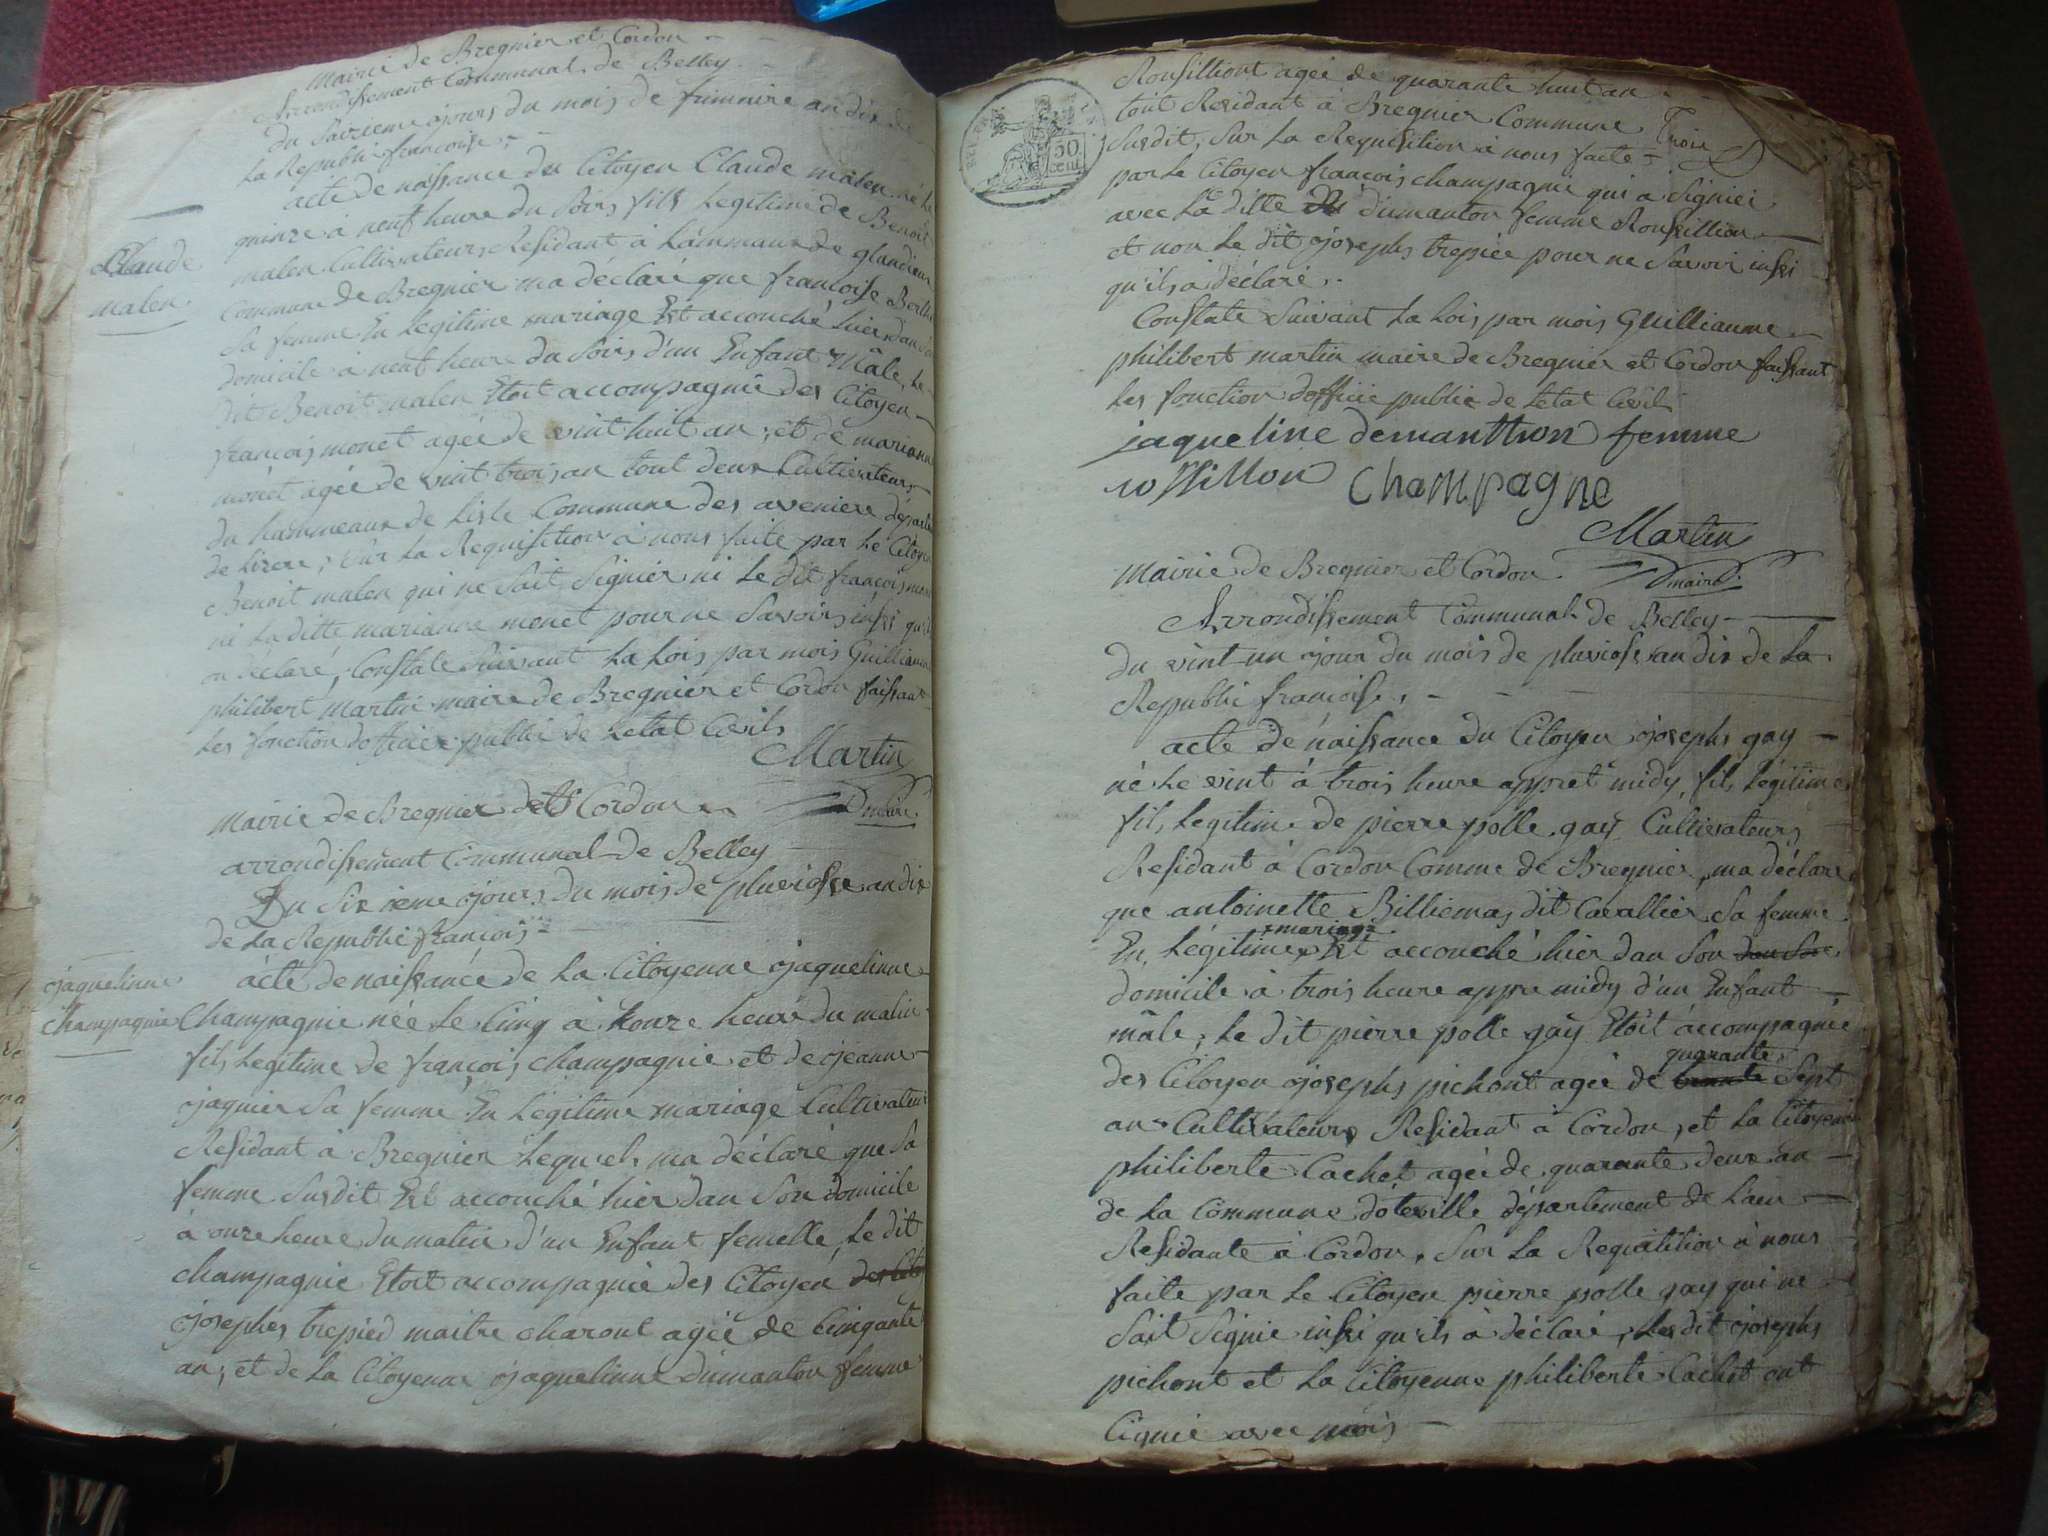 Mairie de Bregnier et Cordon
Arrondissement Communal de Belley
Du Saizieme ojours du mois de frimaire an dix de
La Republi françoise
acte de naissance du Citoyen Claude malen né le
quinze à neuf heure du Soirs fils Legitime de Benoit
Claude
malen
malen Cultivateurs Residant à Lâmmaux de glandieu
Commune de Bregnier ma déclaré que françoise Berthe
Sa femme En Legitime mariage Est accouché hier dan Son
domicile à neuf heure du Soirs d'un Enfant Mâle, Le
dit Benoit malen Etoit accompagnié des Citoyen
françois monet agée de vint huit an, et de marianne
monet agée de vint trois an tout deux Cultivateurs
du hammeaux de Lisle Commune des aveniere départ
de Lizere, Sur La Requisition à nous faite par Le Citoyen
Benoit malen qui ne Sait Signier ni Le dit françois monet
ni La ditte marianne monet pour ne Savoirs insi qu'ils
on déclaré, Constate Suivant La Lois par mois Guilliaume
philibert martin maire de Bregnier et Cordon faissant
Les fonction d'officier public de Letat Civils
Martin
maire
Mairie de Bregnier et Cordon
arrondissement Communal de Belley
Du Sixieme ojours du mois de pluviosse an dix
de La Republi françois
ojaquelinne
Champagnie
acte de naissance de La Citoyenne ojaquelinne
Champagnie née Le Cinq à honze heure du matin
fils Legitime de françois Champagnie et de ojeanne
ojagnier Sa femme En Légitime mariage Cultivateur
Residant à Bregnier Lequels ma déclaré que Sa
femme Susdit Est accouché hier dan Son domicile
à onze heure du matin d'un Enfant femelle, Le dit
Champagnie Etoit accompagnié des Citoyen des Cito
ojosephs trepied maitre charont agée de Cinqante
an, et de La Citoyenne ojaquelinne dumanton femme
50
cent.
Ronsilliont agée de quarante huit an
tout Residant à Bregnier Commune
Trois
Susdit, Sur La Requisition à nous faite
par Le Citoyen françois champagnie qui à Signiei
avec La ditte dumanton femme Ronsillion
et non Le dit ojosephs trepiée pour ne Savoir insi
qu'ils à déclaré
Constate Suivant La Lois par mois Guilliaume
philibert martin maire de Bregnier et Cordon faissant
Les fonction d'officie public de Letat Civils
jaqueline demantton femme
rossillon Champagne
Martin
maire
Mairie de Bregnier et Cordon
Arrondissement Communal de Belley
Du vint un ojour du mois de pluviose an dix de La
Republi françoise
acte de naissance du Citoyen ojosephs gay
né Le vint à trois heure appret midy, fils Légitime
fils Legitime de pierre polle gay Cultivateurs
Residant à Cordon Comme de Bregnier, ma déclaré
que antoinette Billiemas dit Cavallier Sa femme
En Légitime mariage Est accouché hier dan Son dan Son
domicile à trois heure appre midy d'un Enfant
mâle, Le dit pierre polle gay Etoit accompagnié
des Citoyen ojosephs pichont agée de trante quarante Sept
an Cultivateurs Residant à Cordon, et La Citoyenne
philiberte Cachet agée de quarante deux an
de La Commune d'oteville département de Laen
Residante à Cordon, Sur La Requisition à nous
faite par Le Citoyen pierre polle gay qui ne
Sait Signie insi qu'ils à déclaré, Les dit ojosephs
pichont et La Citoyenne philiberte Cachet ont
Signié avec mois